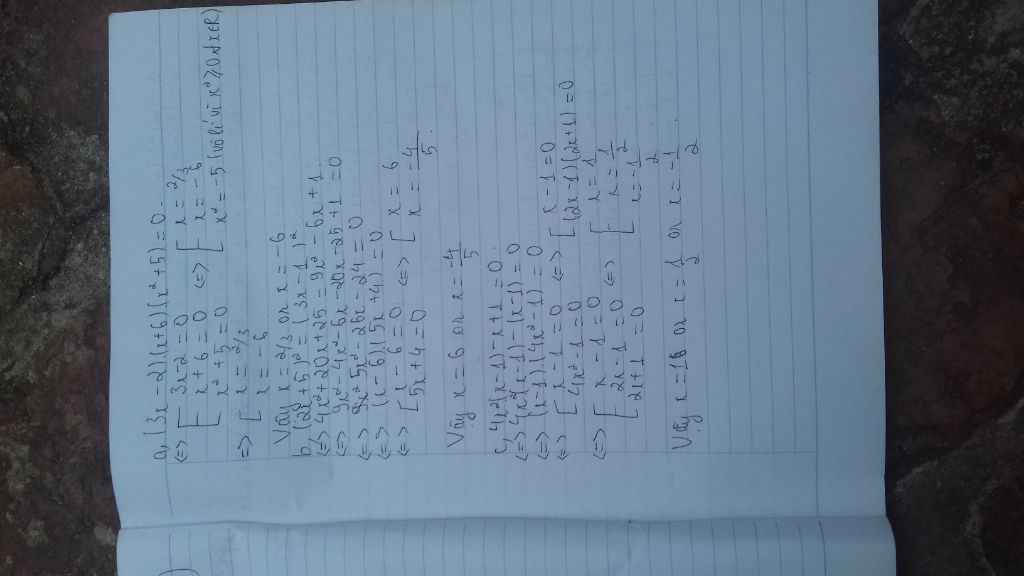 a, (3x-2)(x+6)(x²+5) = 0.
<=> [ 3x-2=0 <=> [ x = 2/3
x+6=0 x = -6
x²+5=0 x² = -5 (vô lí vì x² ≥ 0 ∀x∈R)
=> [ x = 2/3
x = -6
Vậy x = 2/3 or x = -6
b, (2x+5)² = (3x-1)²
<=> 4x²+20x+25 = 9x²-6x+1.
<=> 9x²-4x²-6x-20x-25+1=0
<=> 5x²-26x-24=0
<=> (x-6)(5x+4)=0
<=> [ x-6=0 <=> [ x = 6
5x+4=0 x = -4/5.
Vậy x = 6 or x = -4/5
c, 4x²(x-1)-x+1=0.
<=> 4x²(x-1)-(x-1)=0
<=> (x-1)(4x²-1)=0
<=> [ x-1=0 <=> [ x-1=0
4x²-1=0 (2x-1)(2x+1)=0
<=> [ x-1=0 <=> [ x = 1
2x-1=0 x = 1/2
2x+1=0 x = -1/2
Vậy x = 1 or x = 1/2 or x = -1/2.